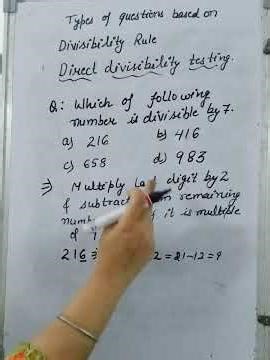 Types of questions based on
Divisibility Rule
Direct divisibility testing.
Q: Which of following
number is divisible by 7.
a) 216 b) 416
c) 658 d) 983
⇒ Multiply digit by 2
& subtract remaining
it is multiple
of
216 2 = 21-12 = 9